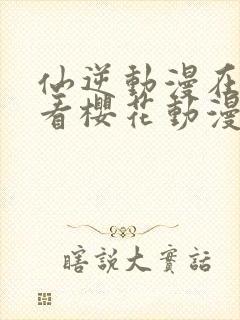 仙逆動漫在
看櫻花動漫
瞎說大實話